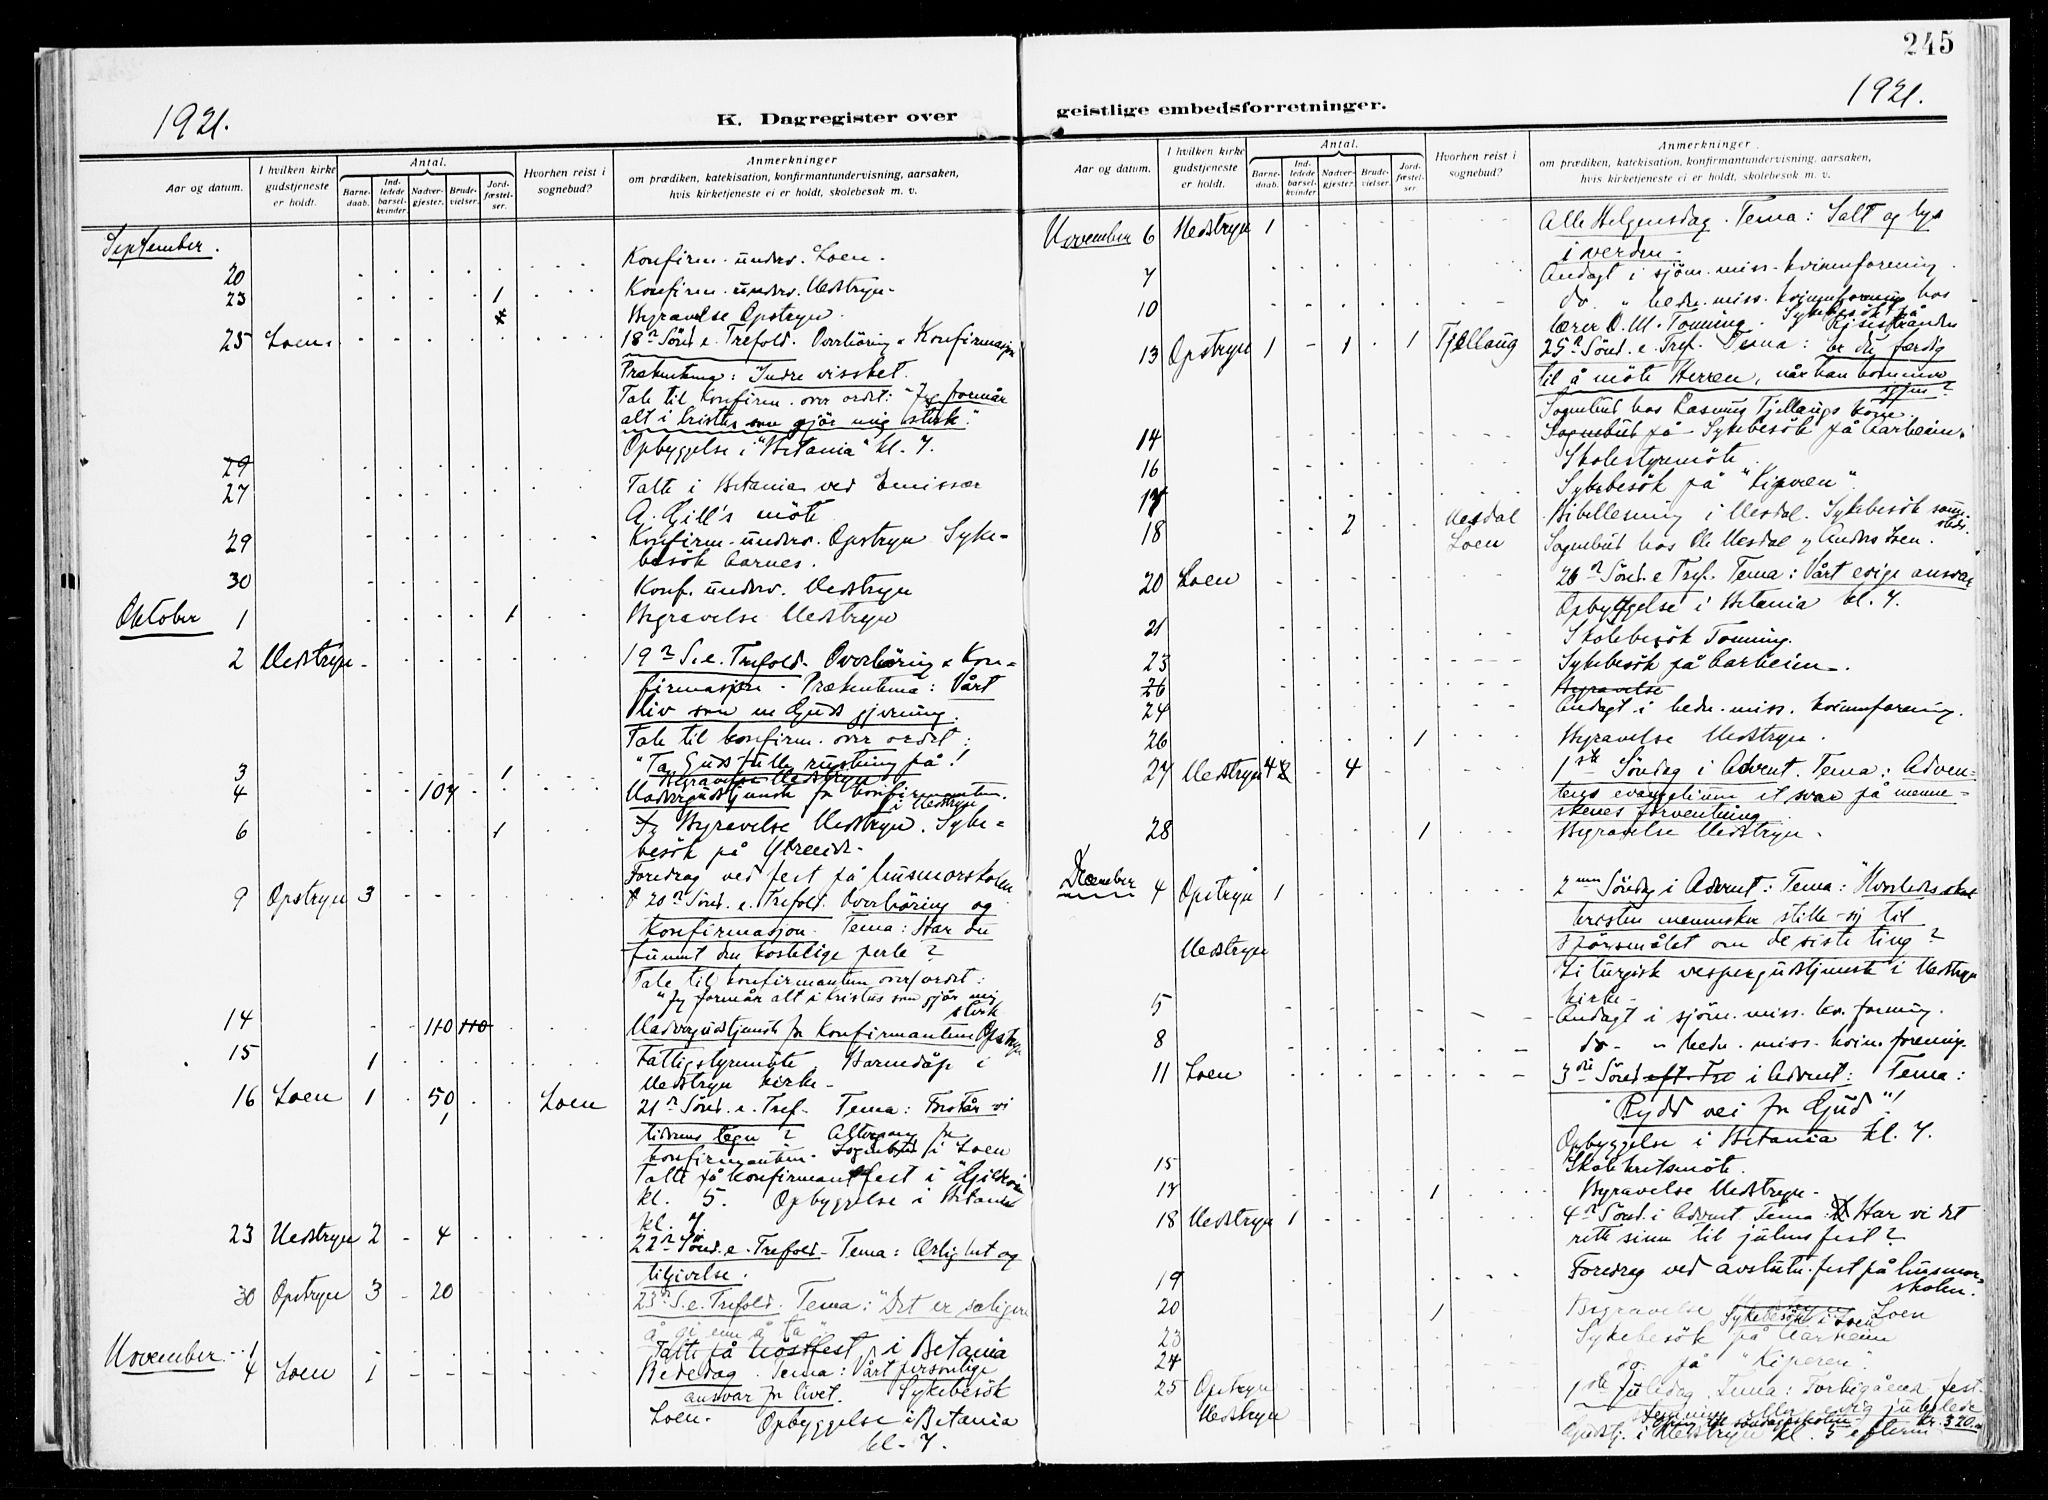 245
1921.
K. Dagregister over
geistlige embedsforretninger.
1921.
Aar og datum.
I hvilken kirke gudstjeneste er holdt.
Antal.
Barnedaab.
Indledede barselkvinder.
Nadvergjester.
Brudevielser.
Jordfæstelser.
Hvorhen reist i sognebud?
Anmerkninger
om prædiken, katekisation, konfirmantundervisning, aarsaken,
hvis kirketjeneste ei er holdt, skolebesøk m. v.
September.
20 Konfirm. underv. Loen.
23 1 Konfirm. underv. Nedstryn.
Begravelse Opstryn.
25 Loen 18n Sönd. e. Trefold. Overhöring & Konfirmasjon
Prækentema: Indre visshet.
Tale til Konfirm. over ordet: "Jeg formår
alt i kristus som gjör mig sterk".
Opbyggelse i "Betania" kl. 7.
29
27 Talte i Betania ved Emissær
Gill's möte
29 Konfirm. underv. Opstryn Syke-
besök
30 Konf. underv. Nedstryn
Oktober 1 1 Begravelse Nedstryn
2 Nedstryn 19n S. e. Trefold. Overhöring & Kon-
firmasjon. Prækentema: Vårt
liv som en Guds gjerning.
Tale til konfirm. over ordet:
"Ta Guds fulle rustning på!
3 1 Begravelse Nedstryn
4 107 Nadvergudstjeneste for konfirmanten
i Nedstryn
6 1 Begravelse Nedstryn. Syke-
besök på
Foredrag ved fest på husmorskolen
9 Opstryn 3 20n Sönd. e. Trefold. Overhöring og
Konfirmasjon. Tema: Har du
funnet den kostelige perle?
Tale til konfirmanten over ordet:
"Jeg formår alt i Kristus som gjör mig
sterk
14 110 110 Nadvergudstjeneste for Konfirmanten Opstryn
15 1 Fattigstyremöte. Barnedåp i
Nedstryn kirke.
16 Loen 1 50 Loen 21n Sönd. e. Tref. Tema: Forstår vi
1 tidens tegn? Altergang for
konfirmanten. Sognebud i Loen
Talte på konfirmantfest i
kl. 5. Opbyggelse i Betania
kl. 7.
23 Nedstryn 2 4 22n Sönd. e. Trefold. Tema: Ærlighet og
tilgivelse.
30 Opstryn 3 20 23n S. e. Trefold. Tema: "Det er saligere
å gi enn å ta"
November 1 Talte på höstfest i Betania
4 Loen 1 Bededag. Tema: Vårt personlige
ansvar for livet. Sykebesök
Loen. Opbyggelse i Betania
kl. 7.
Aar og datum.
I hvilken kirke gudstjeneste er holdt.
Antal.
Barnedaab.
Indledede barselkvinder.
Nadvergjester.
Brudevielser.
Jordfæstelser.
Hvorhen reist i sognebud?
Anmerkninger
om prædiken, katekisation, konfirmantundervisning, aarsaken,
hvis kirketjeneste ei er holdt, skolebesøk m. v.
November 6 Nedstryn 1 Alle Helgensdag. Tema: Salt og lys
i verden.
7 Andagt i sjöm. miss. kvinneforening.
10 do. " hedn. miss. kvinneforening hos
lærer O. M. Tonning. Sykebesök på
13 Opstryn 1 1 1 Tjellaug 25n Sönd. e. Tref. Tema: Er du færdig
til å möte Herren, når han kommer
igjen?
Sognebud hos Rasmus Tjellaugs kone.
14 Sognebud på Sykebesök på Aarheim.
16 Skolestyremöte.
17 Sykebesök på
18 2 Nesdal Bibellesning i Nesdal. Sykebesök samme-
steds.
Loen Sognebud hos Ole Nesdal og Anders Loen.
20 Loen 26n Sönd. e Tref. Tema: Vårt evige ansvar
Opbyggelse i Betania kl. 7.
21 Skolebesök Tonning.
23 Sykebesök på Aarheim.
26 Begravelse
24 Andagt i hedn. miss. kvinneforening.
26 1 Begravelse Nedstryn.
27 Nedstryn 4 4 1ste Söndag i Advent. Tema: Adven-
tens evangelium et svar på menne-
skenes forventning
28 1 Begravelse Nedstryn.
December 4 Opstryn 1 2nen Söndag i Advent: Tema: "Hvorledes skal
kristen mennesker stille sig til
spörsmålet om de siste ting?
Nedstryn Liturgisk vespergudstjeneste i Nedstryn
kirke.
5 Andagt i sjöm. miss. kv. forening.
8 do. " hedn. miss. kvin. forening.
11 Loen 3die Sönd. eft. Tre i Advent: Tema:
"Rydd vei for Gud"!
Opbyggelse i Betania kl. 7.
15 Skolekretsmöte.
17 1 Begravelse Nedstryn.
18 Nedstryn 1 4n Sönd. i Advent. Tema: Har vi det
rette sinn til julens fest?
19 Foredrag ved avslutn. fest på husmor-
skolen.
20 1 Begravelse Loen
Sykebesök i Loen
23 Sykebesök på Aarheim
24 do. på
25 Opstryn 1ste Juledag. Tema: Forbigående fest-
stemning eller evig juleglede
Nedstryn Ofring til söndagsskolen kr. 320.
Gudstj. i Nedstryn kl. 5 efterm